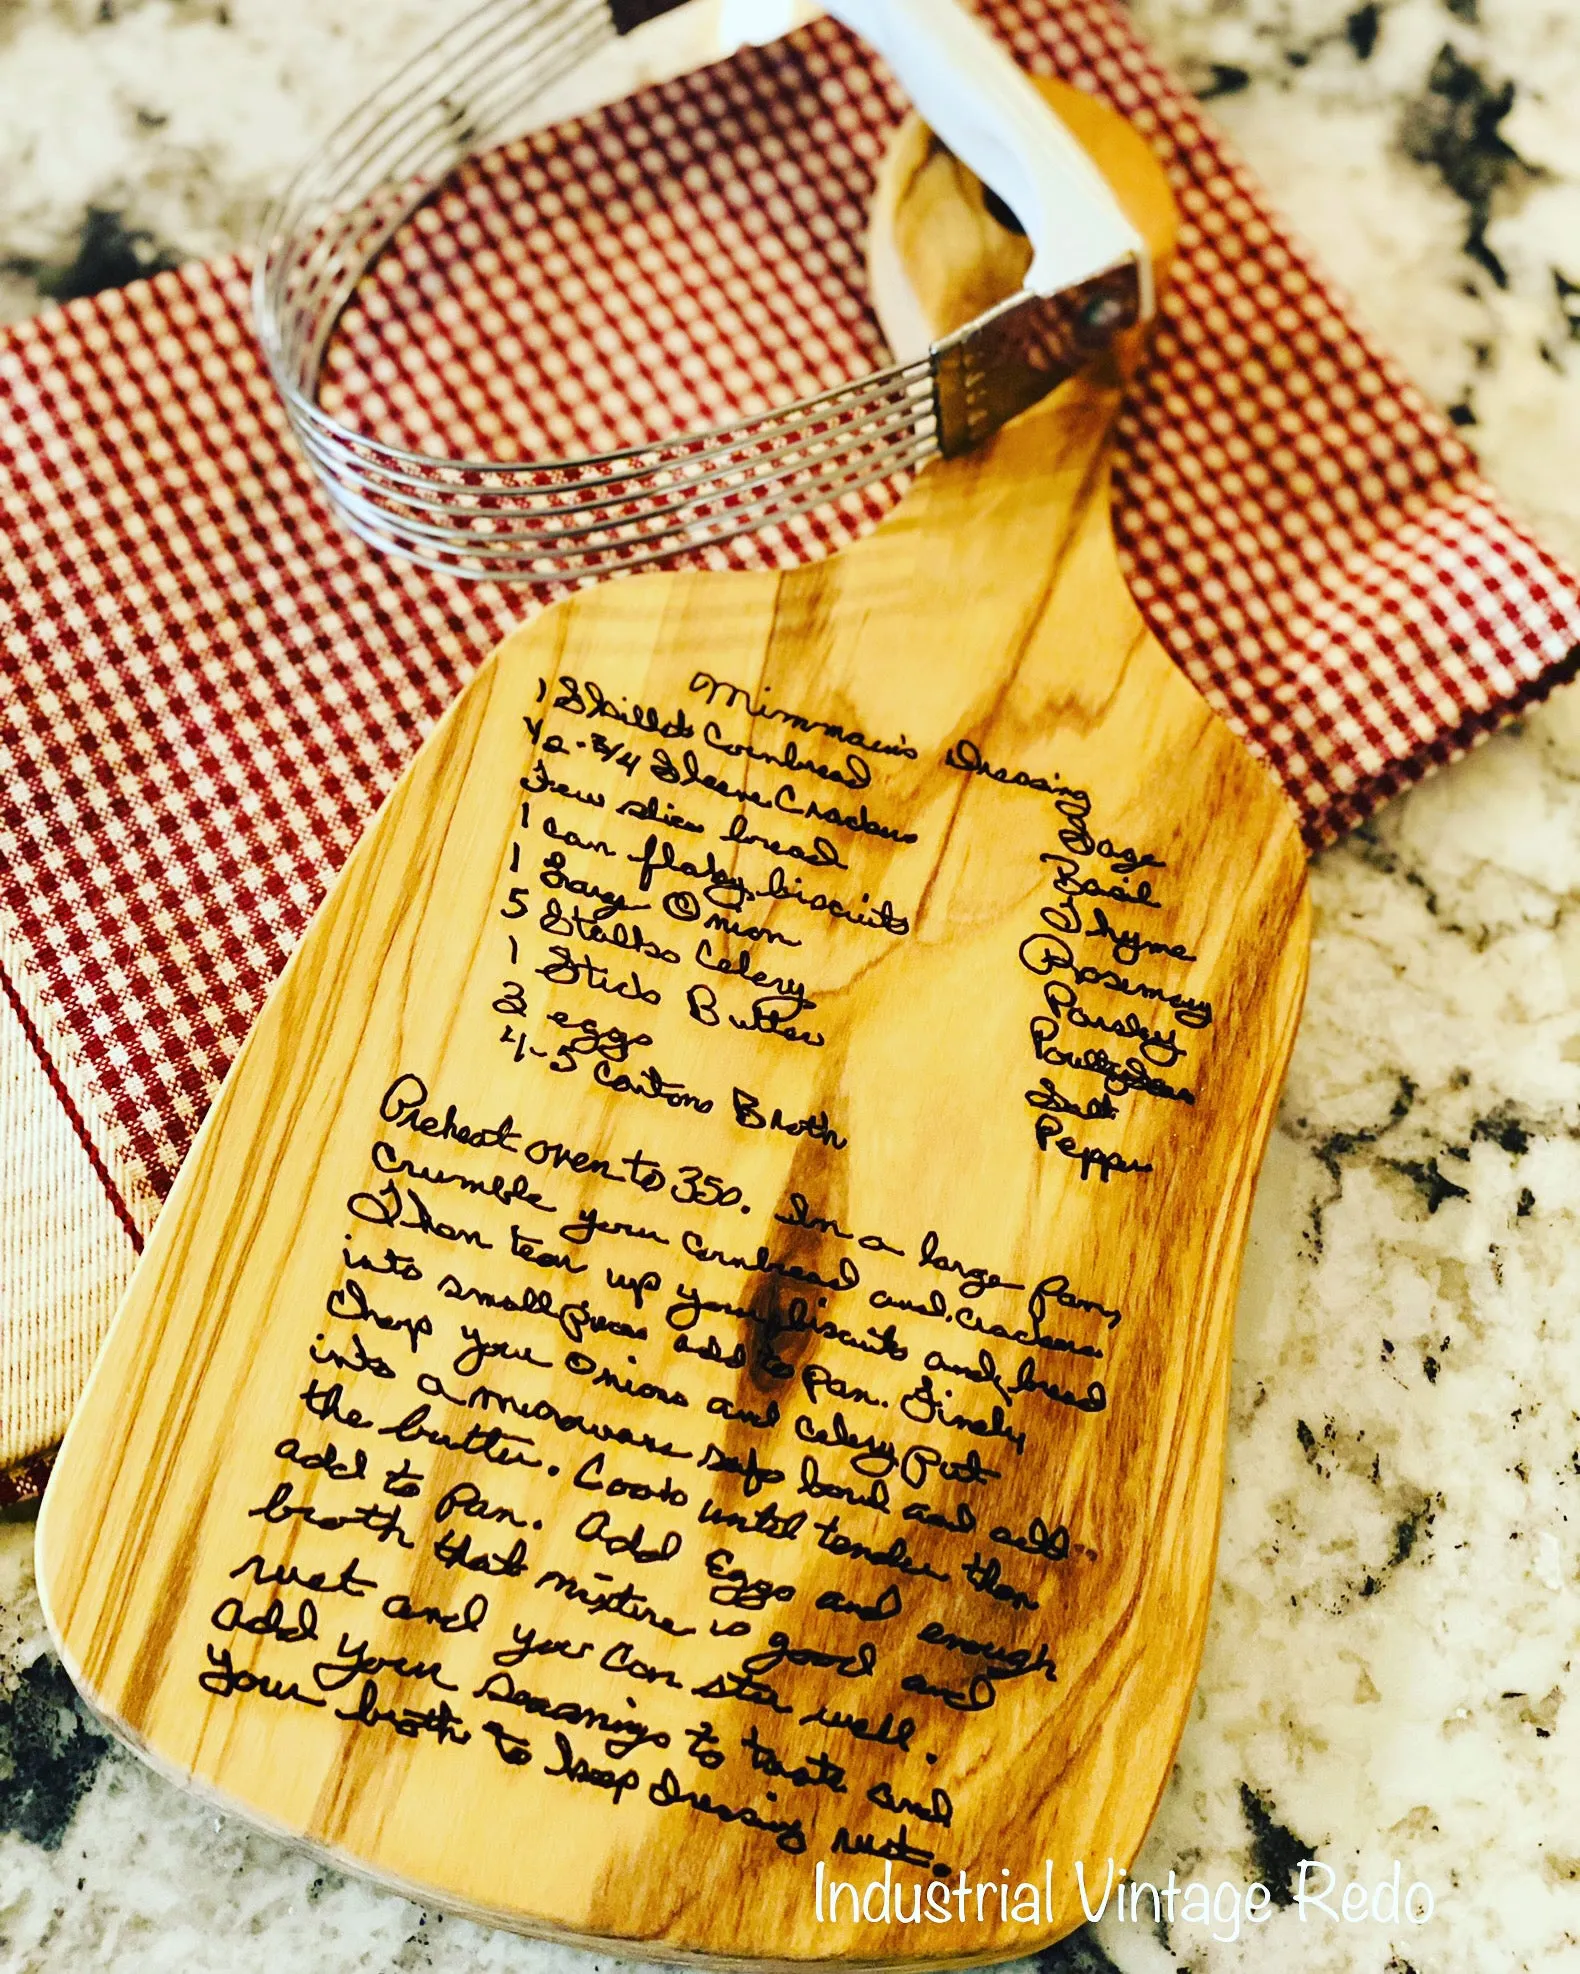 Mimmaw's Dressing
1 Skillet Cornbread
1/2 - 3/4 Sleeve Crackers
Few slices bread
1 can flaky biscuits
1 Large Onion
5 Stalks Celery
1 Stick Butter
3 eggs
4-5 Cartons Broth
Sage
Basil
Thyme
Rosemary
Parsley
Salt
Pepper
Preheat oven to 350. In a large pan,
crumble your cornbread and crackers.
Then tear up your biscuits and bread
into small pieces add to pan. Finely
Chop your onions and celery Put
into a microwave safe bowl and add
the butter. Cook until tender then
add to pan. Add Eggs and enough
broth that mixture is good and
wet and you can stir well.
Add your seasonings to taste and
your broth to keep dressing wet.
Industrial Vintage Redo